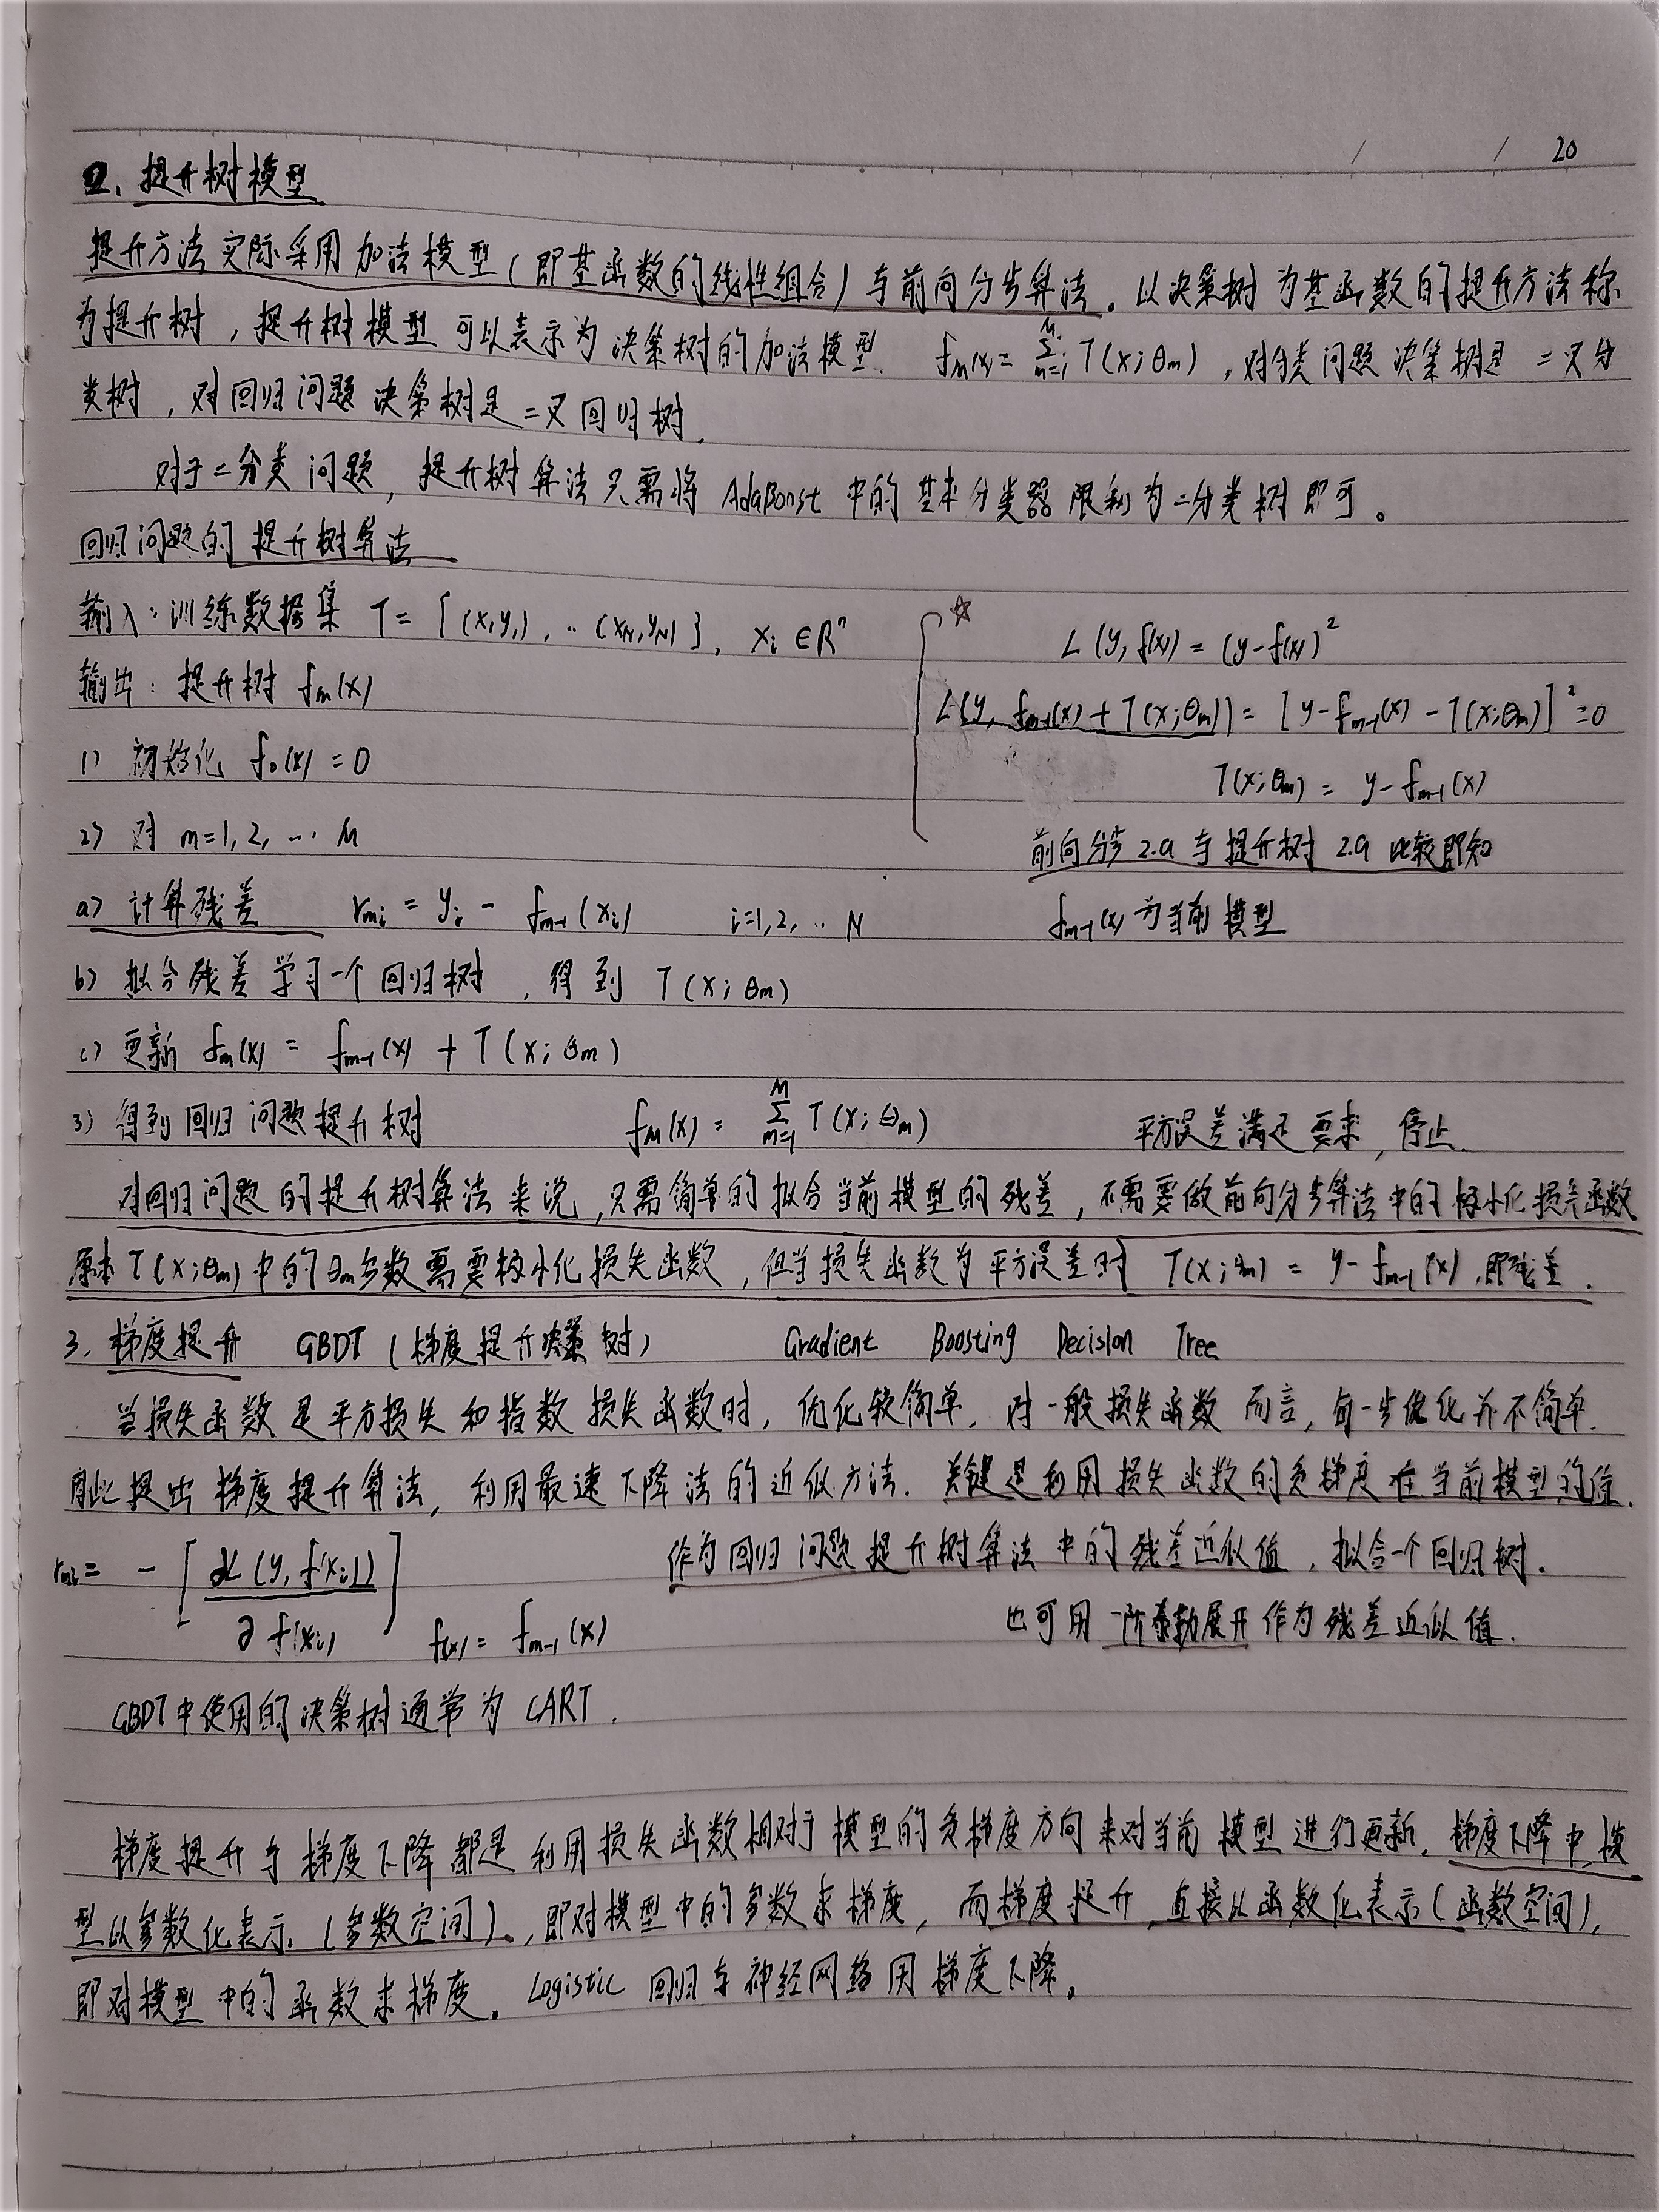 / / 20
2. 提升树模型
提升方法实际采用加法模型(即基函数的线性组合)与前向分步算法。以决策树为基函数的提升方法称
为提升树,提升树模型可以表示为决策树的加法模型. fₘ(x)= Σ_{m=1}^{M} T(x;θₘ),对分类问题决策树是二叉分
类树,对回归问题决策树是二叉回归树.
对于二分类问题,提升树算法只需将 AdaBoost 中的基本分类器限制为二分类树即可。
回归问题的提升树算法
输入:训练数据集 T={(x₁y₁), ··(x_N,y_N)}, xᵢ∈Rⁿ
☆ L(y,f(x)) = (y-f(x))²
输出: 提升树 fₘ(x)
L(y, fₘ₋₁(x)+T(x;θₘ)) = [y-fₘ₋₁(x)-T(x;θₘ)]²=0
1) 初始化 f₀(x)=0
T(x;θₘ) = y-fₘ₋₁(x)
2) 对 m=1,2, ··· M
前向分步 2.a 与提升树 2.a 比较即知
a) 计算残差 rₘᵢ = yᵢ - fₘ₋₁(xᵢ) i=1,2, ·· N
fₘ₋₁(x)为当前模型
b) 拟合残差学习一个回归树,得到 T(x;θₘ)
c) 更新 fₘ(x) = fₘ₋₁(x) + T(x;θₘ)
3) 得到回归问题提升树 f_M(x) = Σ_{m=1}^{M} T(x;θₘ) 平方误差满足要求,停止.
对回归问题的提升树算法来说,只需简单的拟合当前模型的残差,不需要做前向分步算法中的极小化损失函数
原本 T(x;θₘ) 中的θₘ参数需要极小化损失函数,但当损失函数为平方误差时 T(x;θₘ) = y-fₘ₋₁(x),即残差.
3. 梯度提升 GBDT (梯度提升决策树) Gradient Boosting Decision Tree
当损失函数是平方损失和指数损失函数时,优化较简单,对一般损失函数而言,每一步优化并不简单.
因此提出梯度提升算法,利用最速下降法的近似方法.关键是利用损失函数的负梯度在当前模型的值.
rₘᵢ= - [∂L(y,f(xᵢ)) / ∂f(xᵢ)] f(x)=fₘ₋₁(x) 作为回归问题提升树算法中的残差近似值,拟合一个回归树.
也可用一阶泰勒展开作为残差近似值.
GBDT中使用的决策树通常为 CART.
梯度提升与梯度下降都是利用损失函数相对于模型的负梯度方向来对当前模型进行更新,梯度下降中,模
型以参数化表示.(参数空间).,即对模型中的参数求梯度,而梯度提升,直接以函数化表示(函数空间),
即对模型中的函数求梯度。Logistic 回归与神经网络用梯度下降。